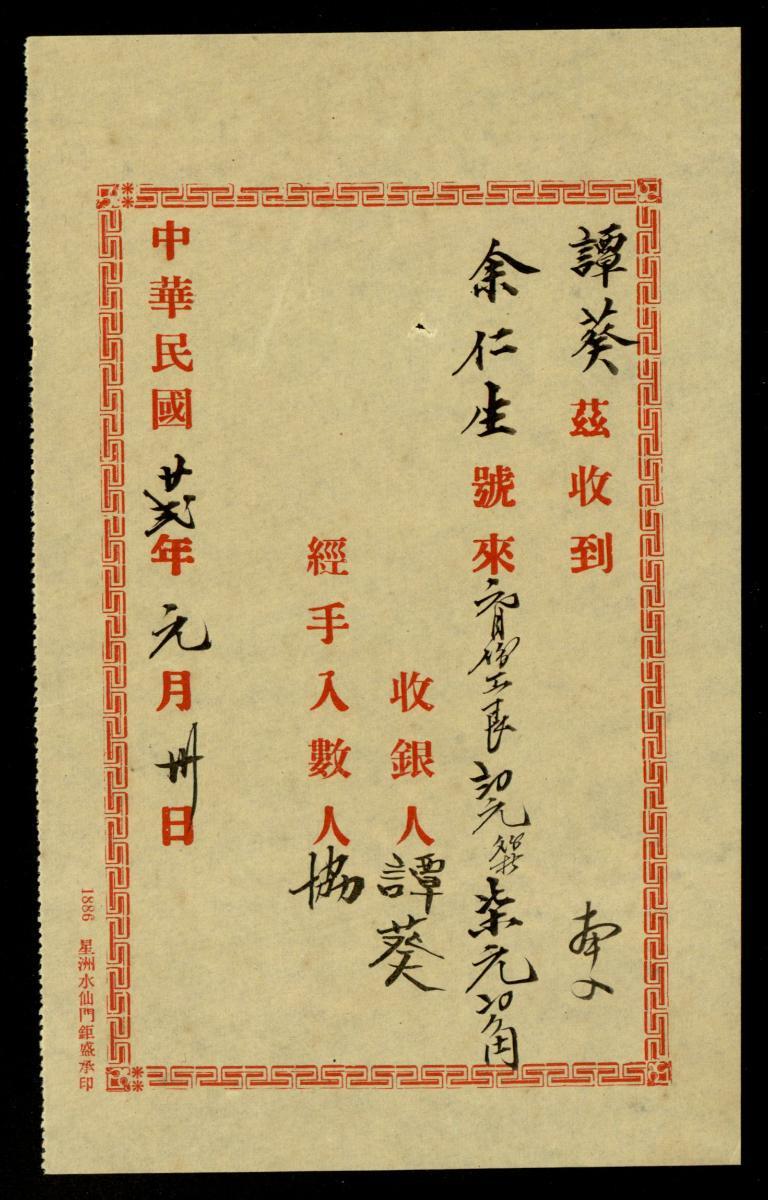 譚葵茲收到
余仁生號來 元月份工 元 柒元 角
收銀人譚葵
經手入數人協
中華民國廿弍年元月卅日
1886 星洲水仙門鉅盛承印